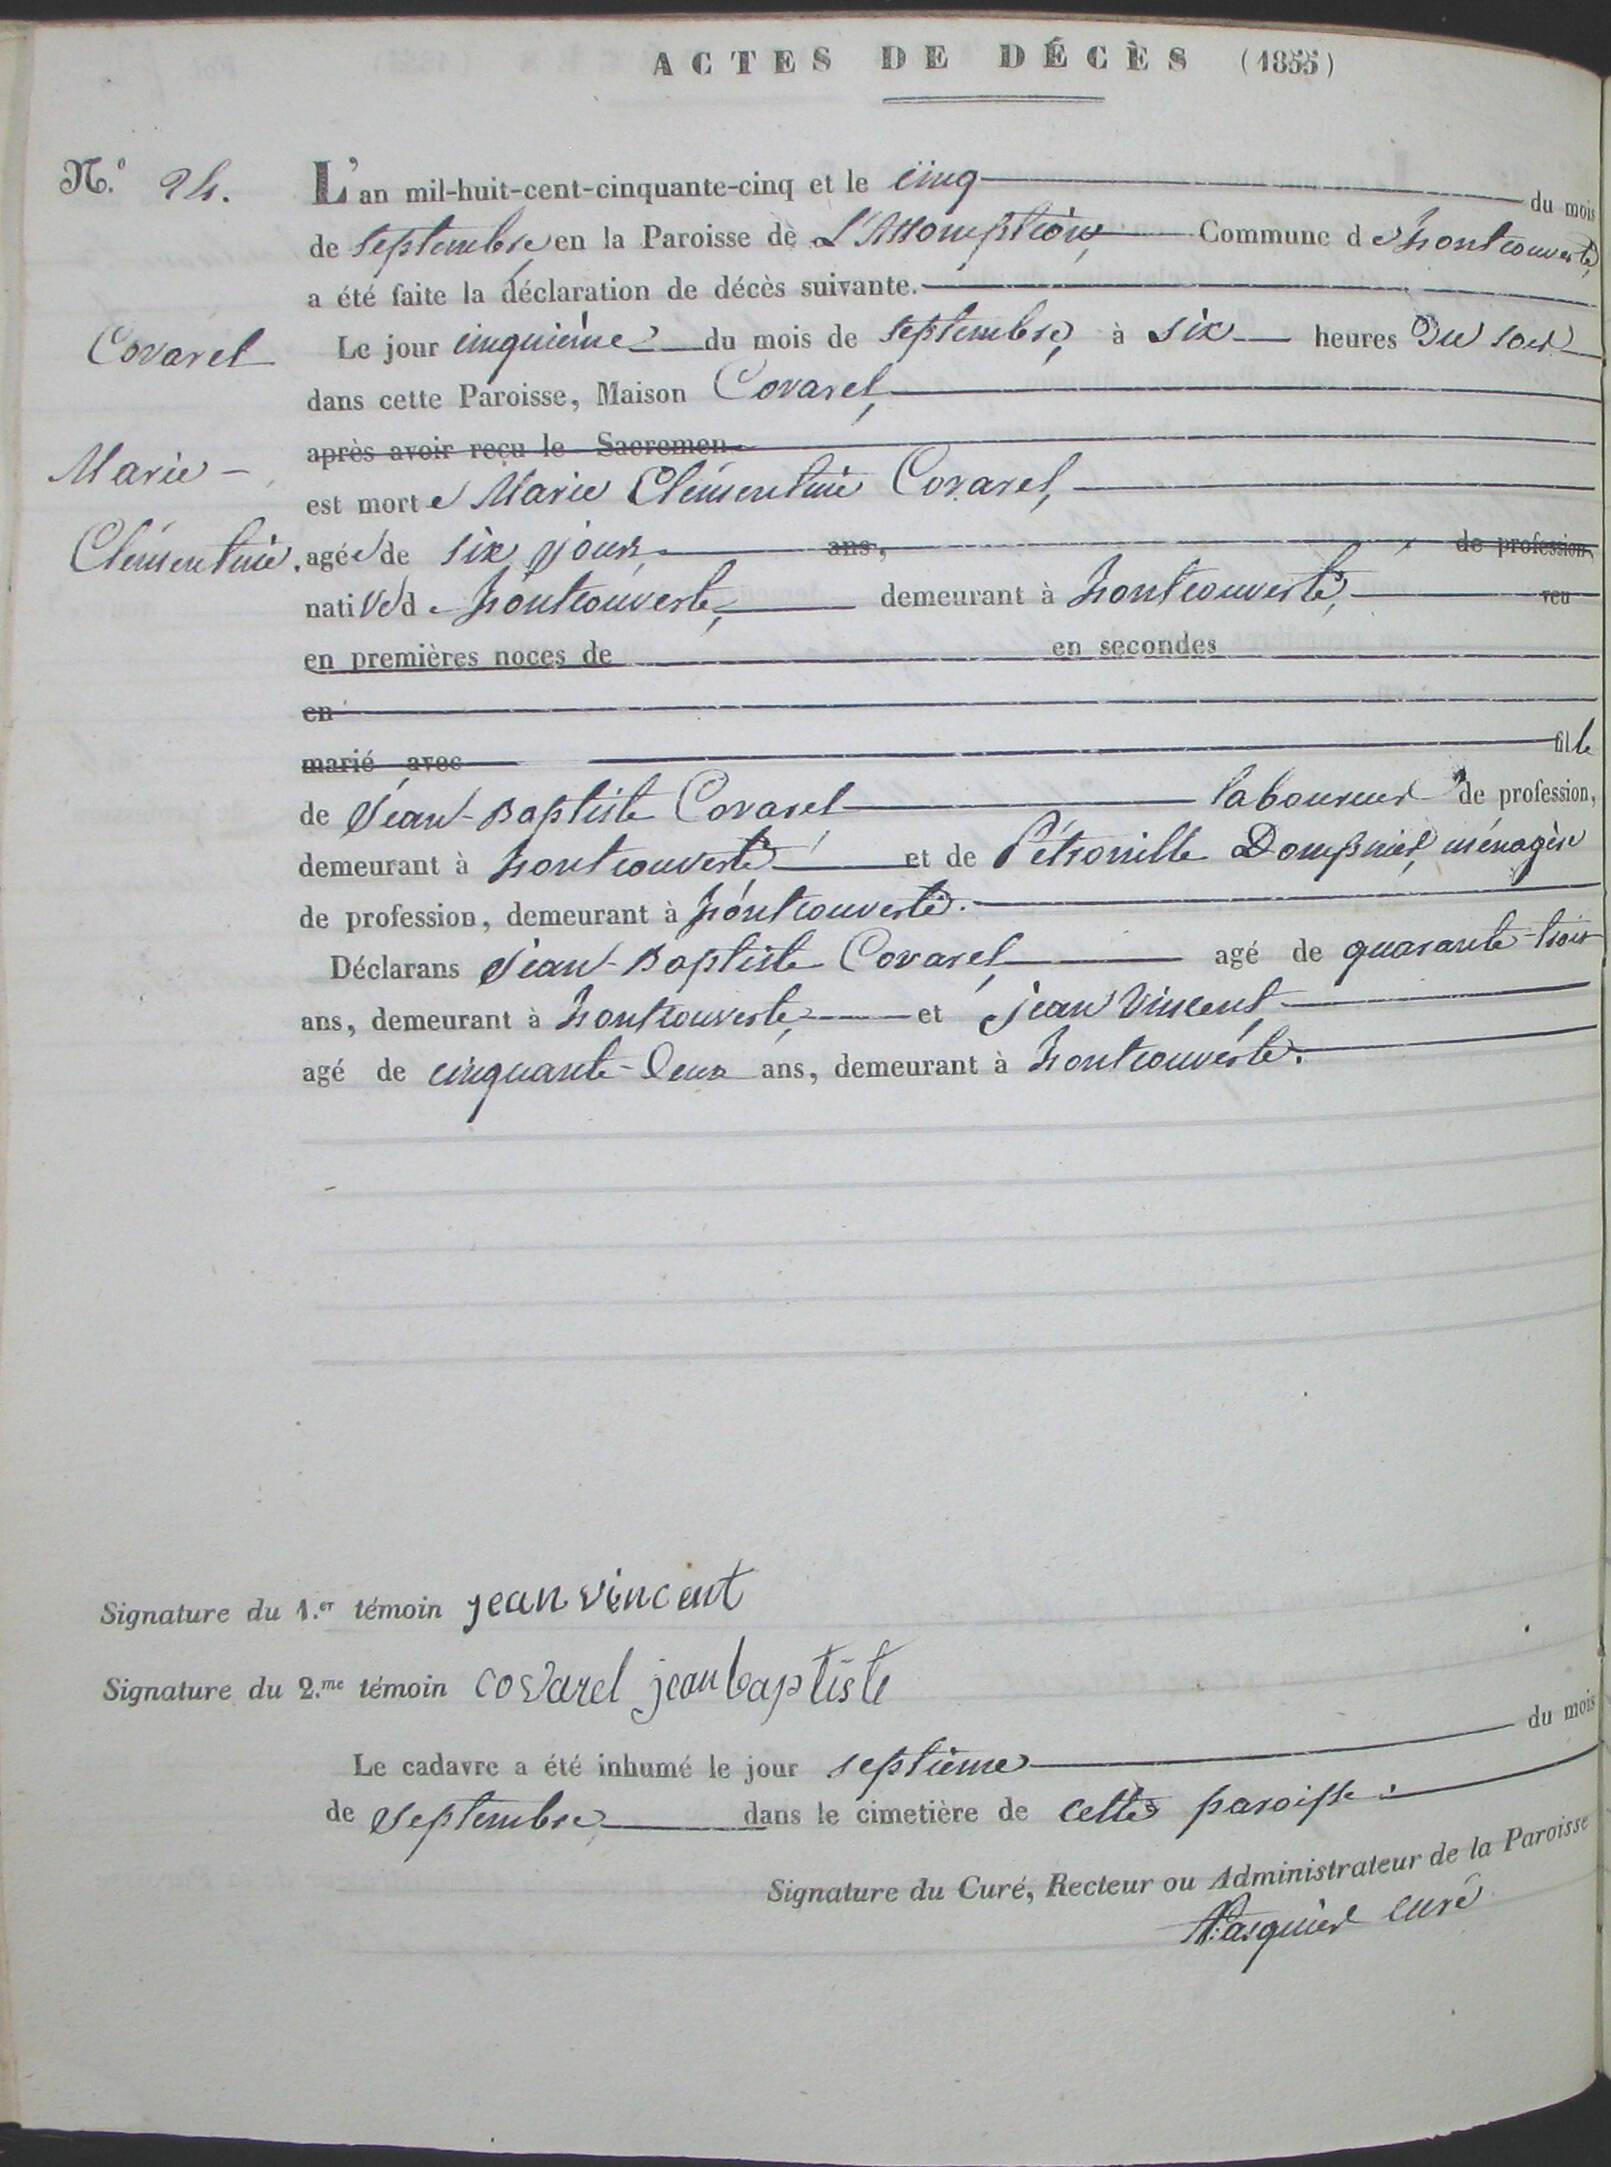 ACTES DE DÉCÈS (1855)
N.º 24.
L'an mil-huit-cent-cinquante-cinq et le cinq du mois
de septembre, en la Paroisse de L'Assomption, Commune de fontcouverte,
a été faite la déclaration de décès suivante.
Covarel
Le jour cinquième du mois de septembre, à six heures du soir
dans cette Paroisse, Maison Covarel,
après avoir reçu le Sacremen
Marie-
est morte Marie Clémentine Covarel,
Clémentine.
agée de six jours, ans, de profession,
native de fontcouverte, demeurant à fontcouverte, veu
en premières noces de en secondes
en
marié avec fille
de Jean-Baptiste Covarel laboureur de profession,
demeurant à fontcouverte et de Pétronille Dompnier, ménagère
de profession, demeurant à fontcouverte.
Déclarans Jean-Baptiste Covarel, agé de quarante-trois
ans, demeurant à fontcouverte, et jean Vincent
agé de cinquante-deux ans, demeurant à fontcouverte.
Signature du 1.er témoin jean vincent
Signature du 2.me témoin covarel jean baptiste
Le cadavre a été inhumé le jour septième du mois
de septembre dans le cimetière de cette paroisse.
Signature du Curé, Recteur ou Administrateur de la Paroisse
Pasquier curé